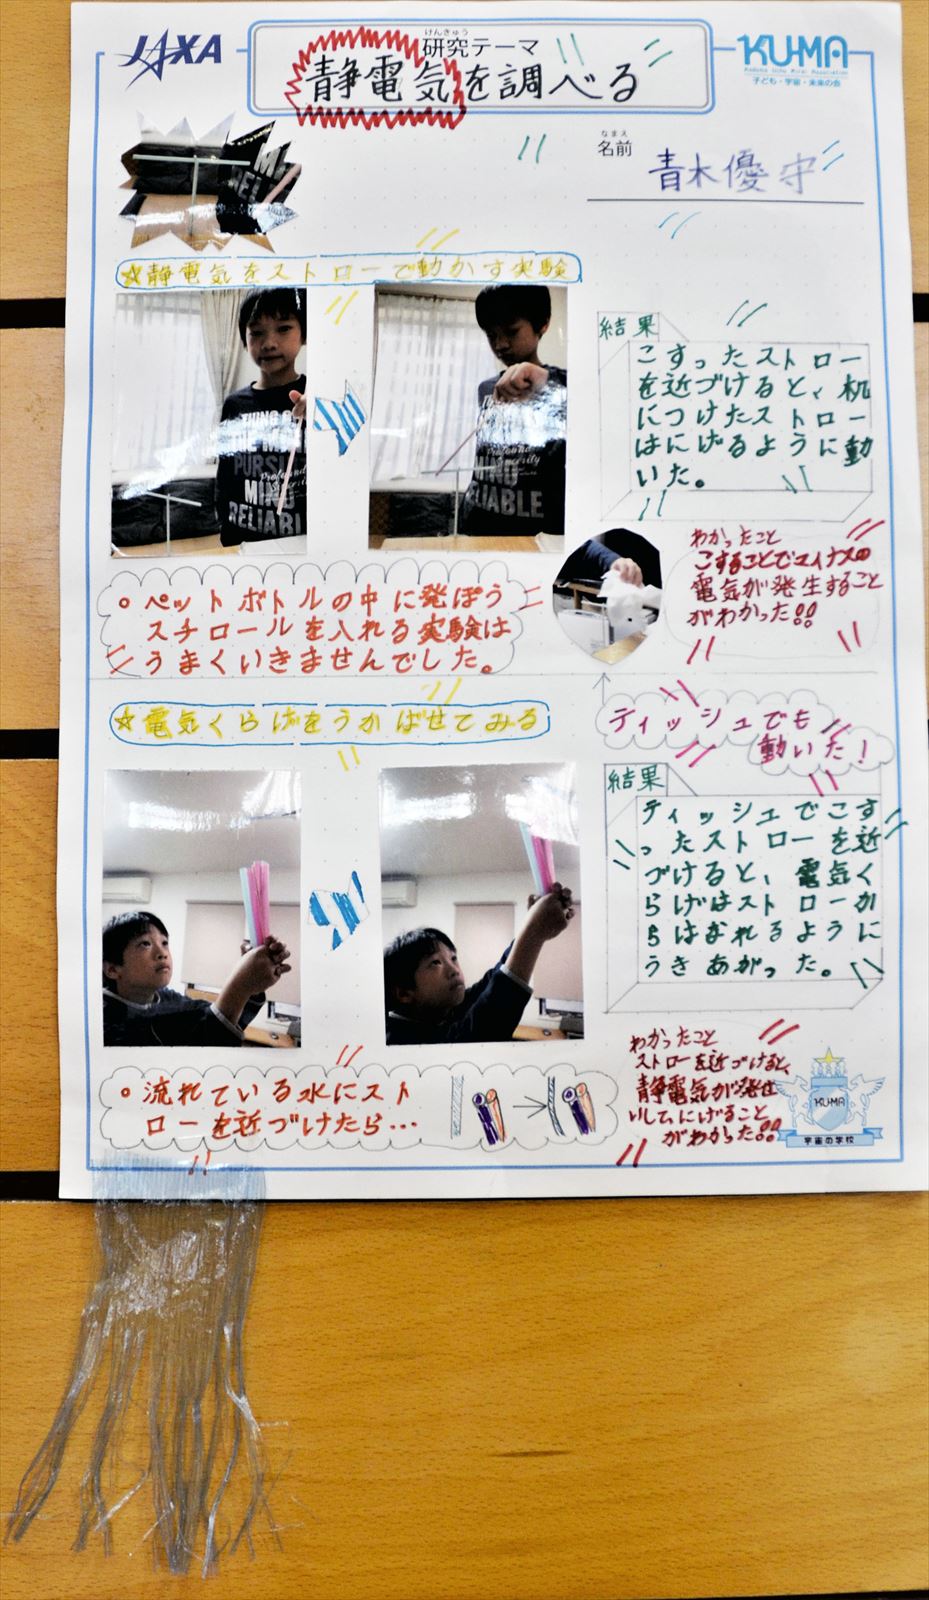 JAXA
けんきゅう
研究テーマ
静電気を調べる
KU-MA
子ども・宇宙・未来の会
なまえ
名前
青木優守
☆静電気をストローで動かす実験
PURSU
MIND
RELIABL
MIND
RELIABLE
結果
こすったストロー
を近づけると、机
につけたストロー
はにげるように動
いた。
わかったこと
こすることでマイナスの
電気が発生すること
がわかった!!
。ペットボトルの中に発ぽう
スチロールを入れる実験は
うまくいきませんでした。
ティッシュでも
動いた!
☆電気くらげをうかばせてみる
結果
ティッシュでこす
ったストローを近
づけると、電気く
らげはストローか
らはなれるように
うきあがった。
。流れている水にスト
ローを近づけたら…
わかったこと
ストローを近づけると、
静電気が発生
してにげること
がわかった!!
KU-MA
宇宙の学校